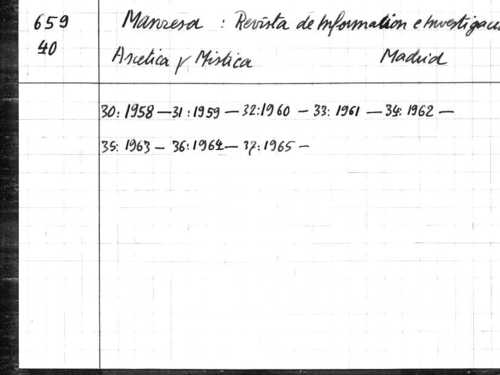 659 Manresa : Revista de Information e Investigaci
40 Ascetica y Mistica Madrid
30: 1958 — 31: 1959 — 32: 1960 — 33: 1961 — 34: 1962 —
35: 1963 — 36: 1964 — 37: 1965 —